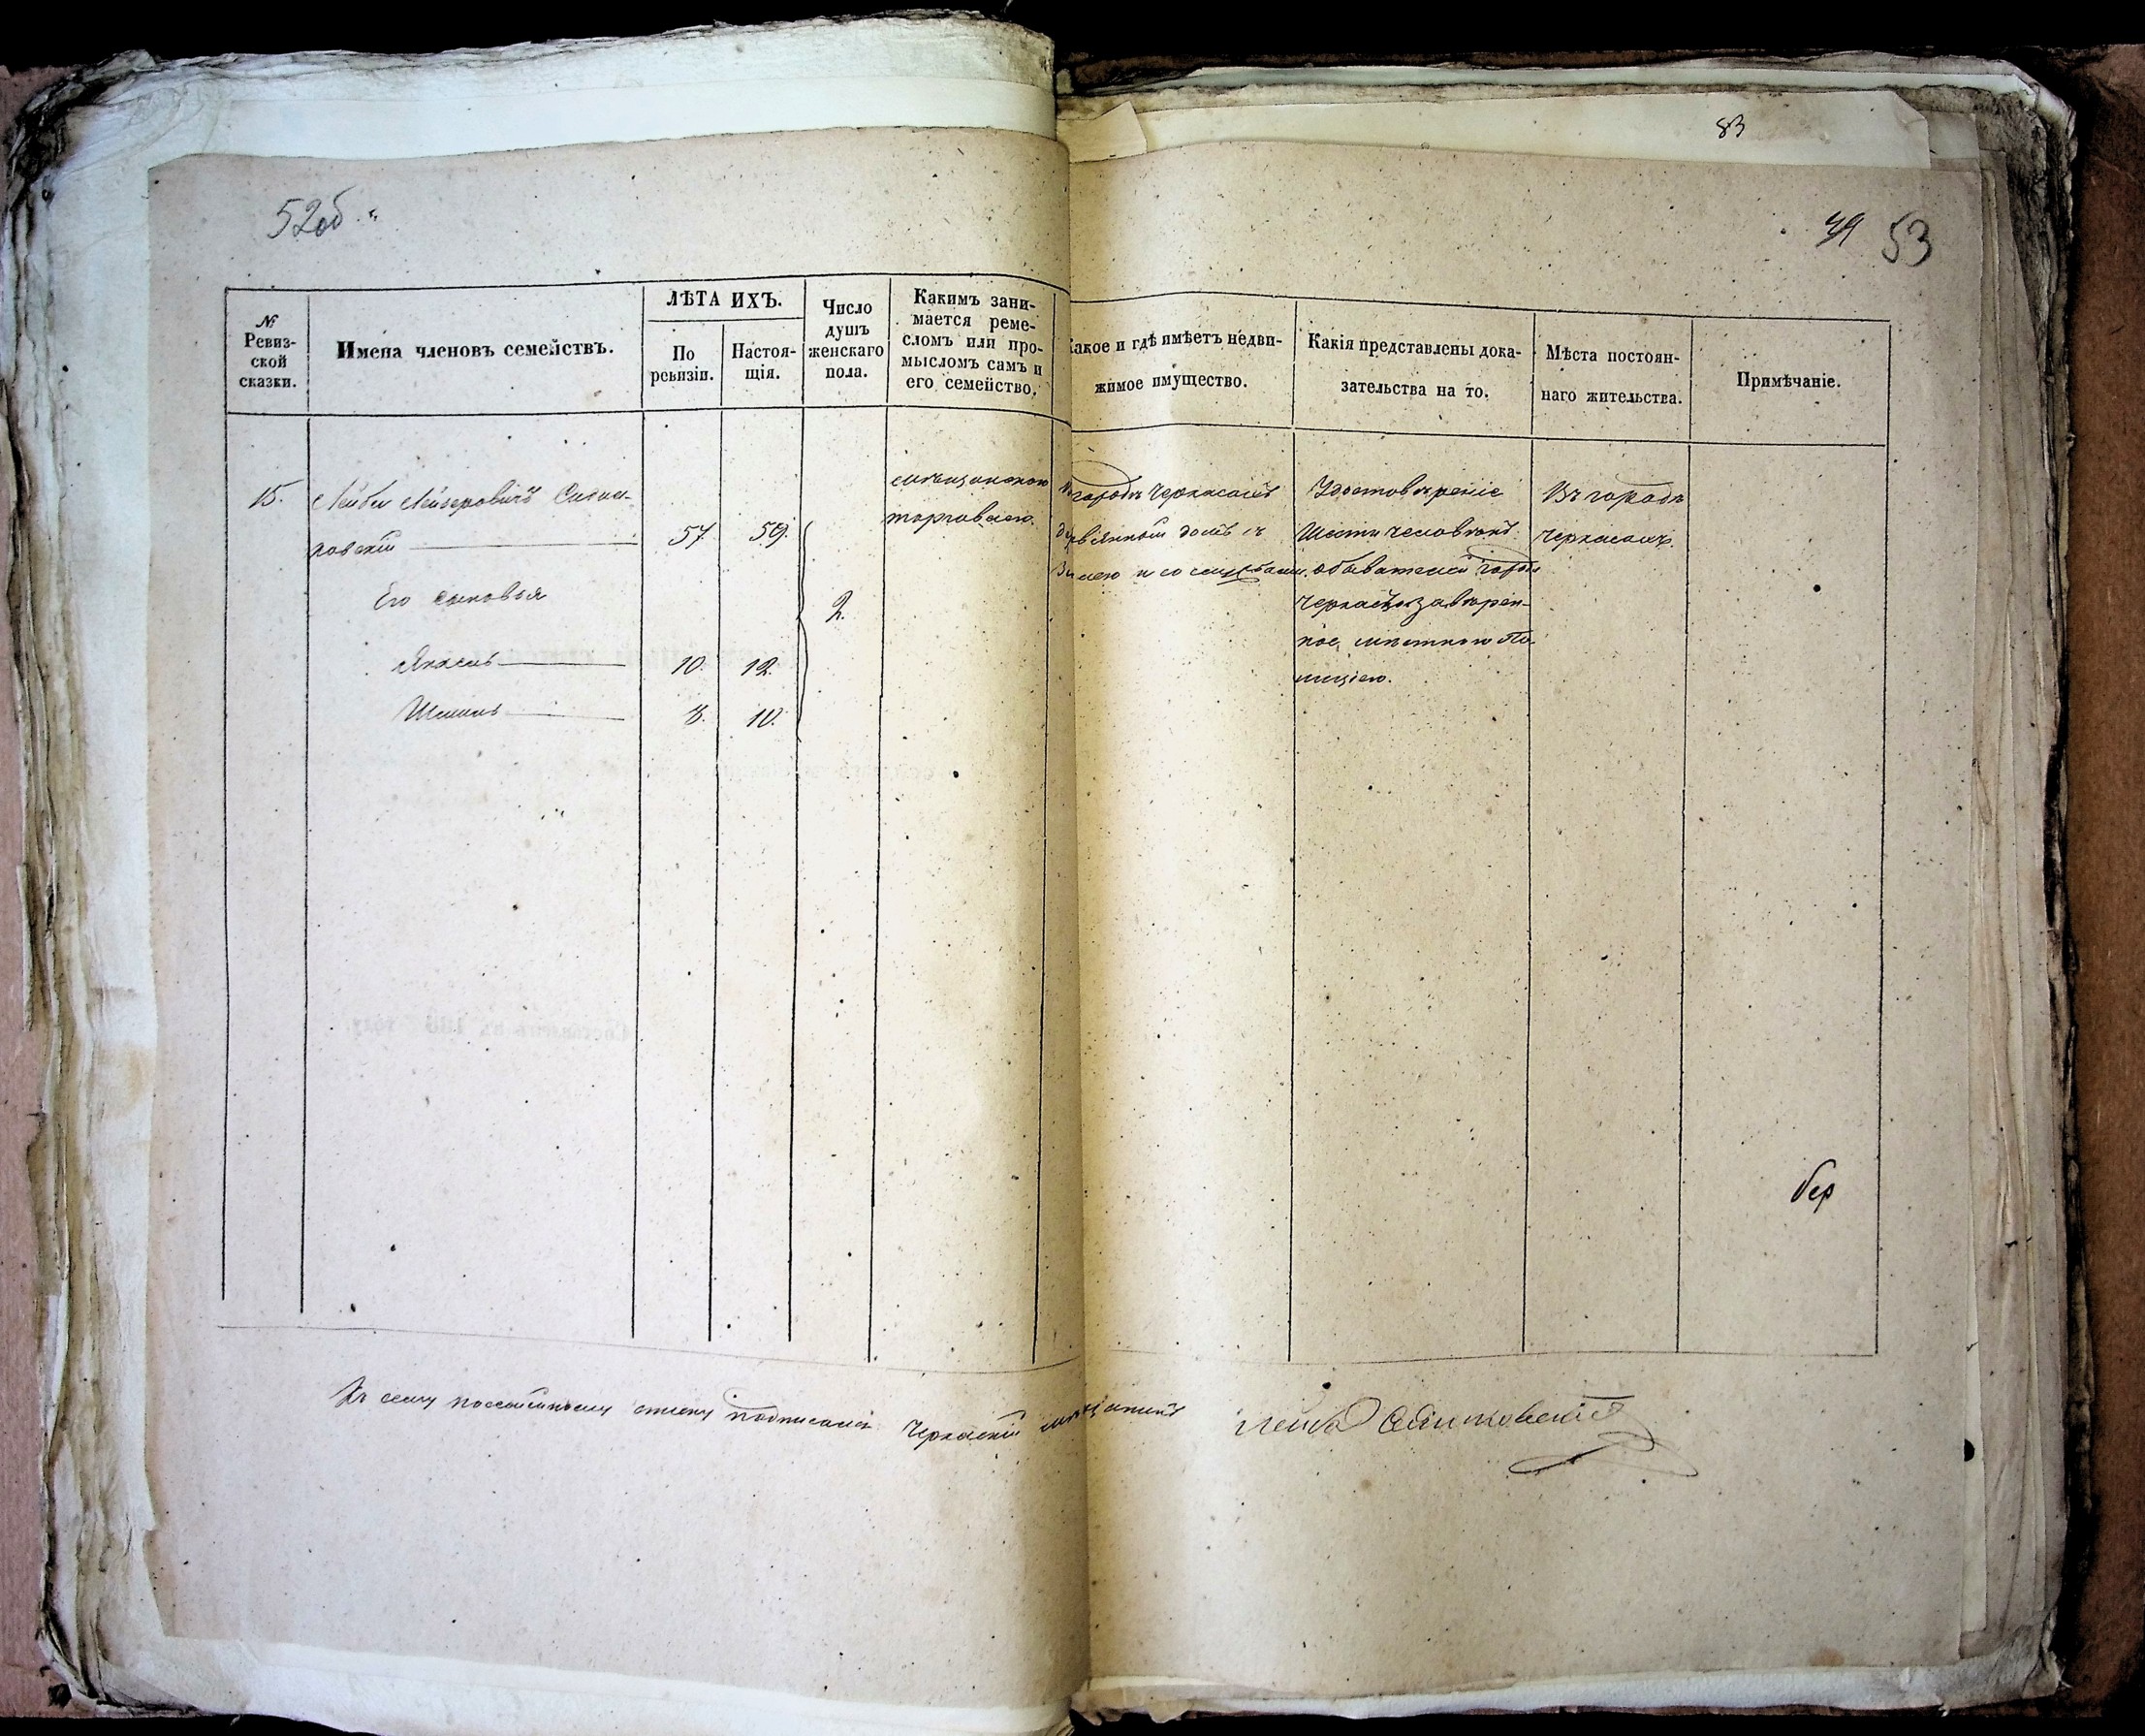 83
52об.
49 53
№ Ревиз-
ской
сказки.
Имена членовъ семействъ.
ЛѢТА ИХЪ.
По
ревизіи.
Настоя-
щія.
Число
душъ
женскаго
пола.
Какимъ зани-
мается реме-
сломъ или про-
мысломъ самъ и
его семейство.
Какое и гдѣ имѣетъ недви-
жимое имущество.
Какія представлены дока-
зательства на то.
Мѣста постоян-
наго жительства.
Примѣчаніе.
15.
Лейба Лейзеровичъ
ровскій
57 59.
Его сыновья
2.
10. 12.
8. 10.
мѣщанскою
торговлею.
городѣ Черкасахъ
деревянный домъ съ
землею и со службами.
Удостовѣреніе
Шести человѣкъ
обывателей города
Черкасъ завѣрен-
ное мѣстною По-
лиціею.
Въ городѣ
Черкасахъ.
Къ сему посемейному списку подписался Черкаскій мѣщанинъ